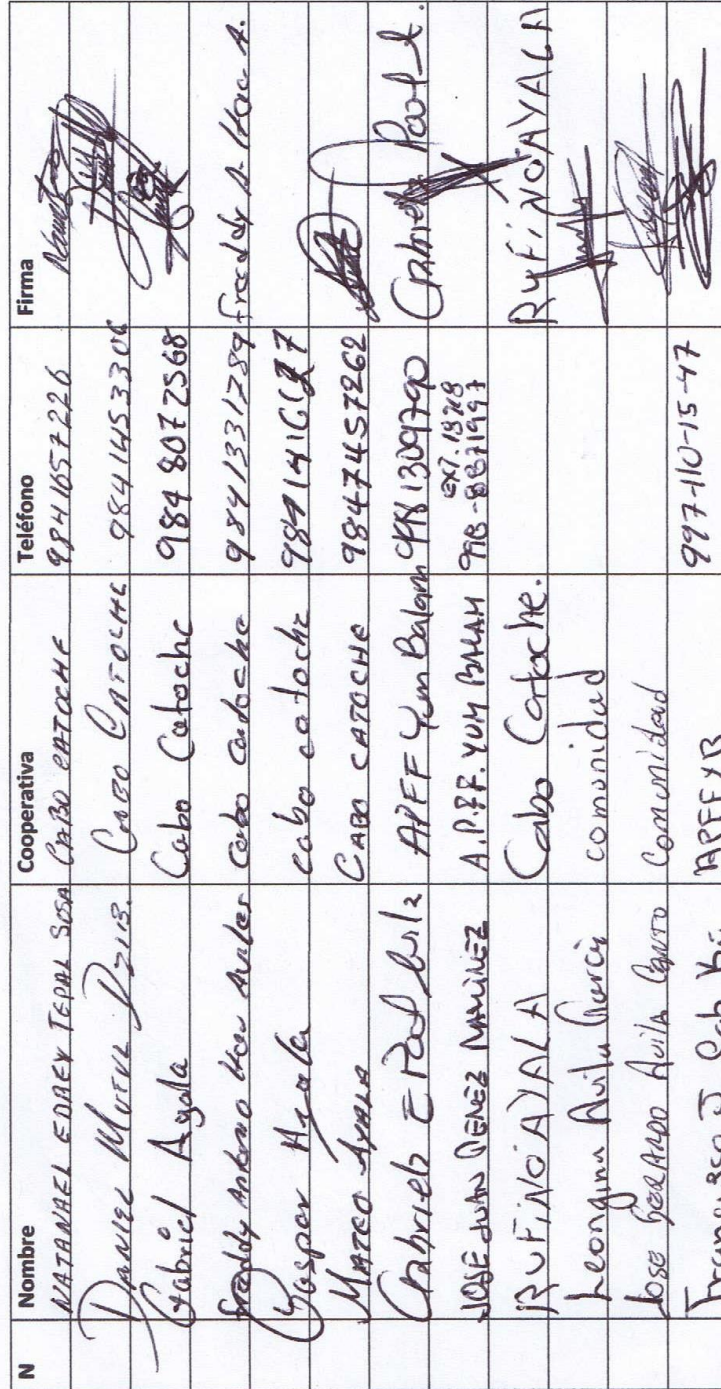 N Nombre Cooperativa Teléfono Firma
NATANAEL EDREY TEPAL SOSA CABO CATOCHE 9841657226
DANIEL MUTUL DZIB. CABO CATOCHE 9841453306
Gabriel Ayala Cabo Catoche 984 807 2568
Freddy Antonio Aviles cabo catoche 9841331789 freddy A.
Gaspar Ayala cabo catoche
MATEO AYALA CABO CATOCHE 9847457262
Gabriela E Poot APFF Yum Balam 1309790 Gabriela Poot A.
JOSE JUAN PEREZ MARTINEZ A.P.F.F. YUM BALAM 998-8871997 EXT. 18718
RUFINO AYALA Cabo Catoche. RUFINO AYALA
Leongina Avila Garcia comunidad
JOSE GERARDO Avila CANTO Comunidad
Francisco J. APFFYB 997-110-15-47